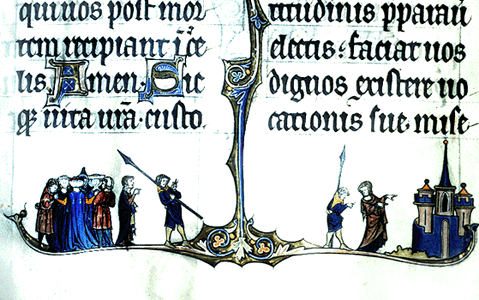 qui uos post mor
tem recipiant i̅ ce
lis. Amen. Sic
qꝫ uita ur̅a̅. custo
titudinis pparaui
electis. faciat uos
dignos existere uo
cationis sue. mise